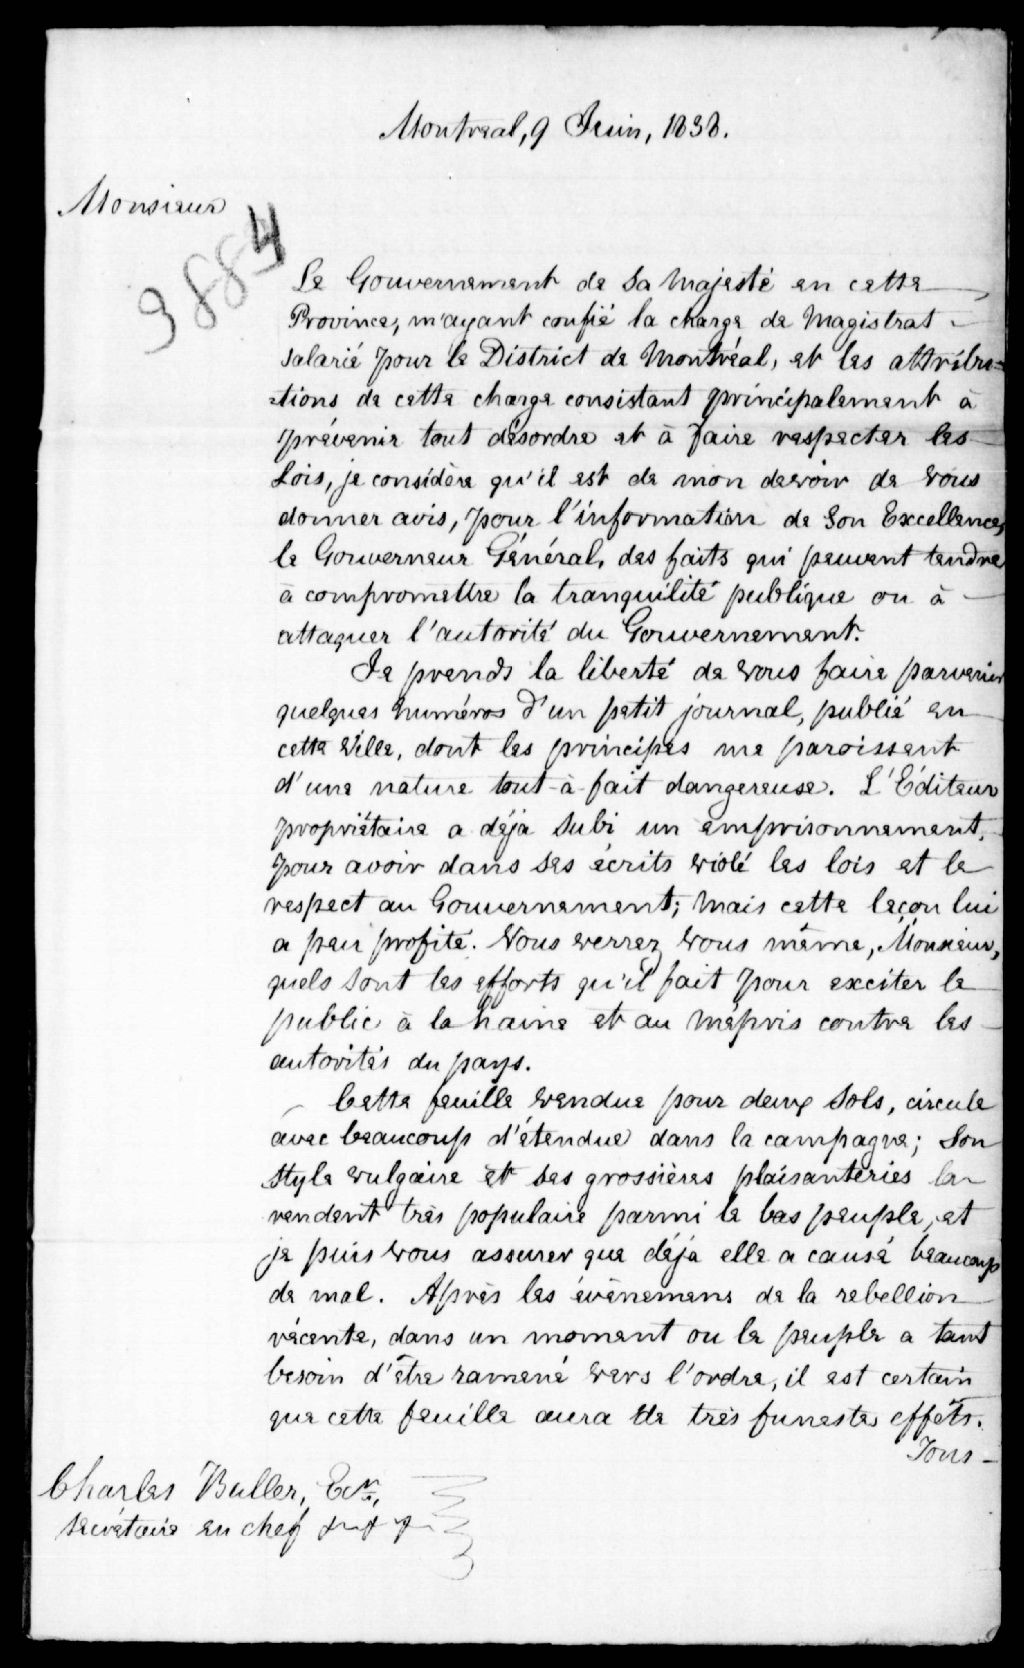 Montreal, 9 Juin, 1838.
Monsieur
9884
Le Gouvernement de Sa Majesté en cette
Province, m'ayant confié la charge de Magistrat
salarié pour le District de Montréal, et les attribu=
=tions de cette charge consistant principalement à
prévenir tout désordre et à faire respecter les
Lois, je considère qu'il est de mon devoir de vous
donner avis, pour l'information de Son Excellence,
le Gouverneur Général, des faits qui peuvent tendre
à compromettre la tranquilité publique ou à
attaquer l'autorité du Gouvernement.
Je prends la liberté de vous faire parvenir
quelques numéros d'un petit journal, publié en
cette Ville, dont les principes me paroissent
d'une nature tout-à-fait dangereuse. L'Éditeur
propriétaire a déja subi un emprisonnement,
pour avoir dans ses écrits violé les lois et le
respect au Gouvernement; mais cette leçon lui
a peu profité. Vous verrez vous même, Monsieur,
quels sont les efforts qu'il fait pour exciter le
public à la haine et au mépris contre les
autorités du pays.
Cette feuille vendue pour deux sols, circule
avec beaucoup d'étendue dans la campagne; Son
style vulgaire et ses grossières plaisanteries la
rendent très populaire parmi le bas peuple, et
je puis vous assurer que déja elle a causé beaucoup
de mal. Après les évènemens de la rebellion
récente, dans un moment ou le peuple a tant
besoin d'être ramené vers l'ordre, il est certain
que cette feuille aura de très funestes effets.
Tous-
Charles Buller, Ecr.,
Secrétaire en chef